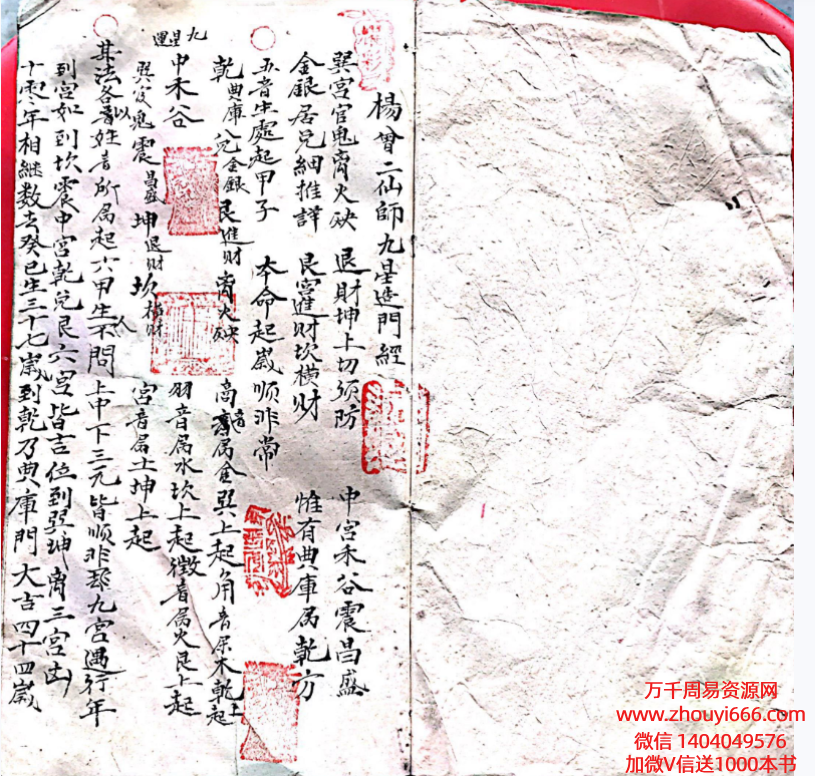 楊曾二仙師九星造門經
巽宮官鬼离火殃 退財坤上切须防 中宮禾谷震昌盛
金銀居兑細推詳 艮宮進财坎横财 惟有典庫属乾方
五音生處起甲子 本命起歲顺非常
乾典庫 兑金銀 艮進财 离火殃 商音属金巽上起角音属木乾上起
九星運
中禾谷 羽音属水坎上起徵音属火艮上起
巽官鬼 震昌盛 坤退财 坎横财 宮音属土坤上起
其法各以姓音所属起六甲生人不問上中下三元皆顺非九宮遇行年
到宮如到坎震中宮乾兑艮六宮皆吉位到巽坤离三宮凶
十零年相継数去癸巳生三十七歲到乾乃典庫門大吉四十四歲
万千周易资源网
www.zhouyi666.com
微信 1404049576
加微V信送1000本书